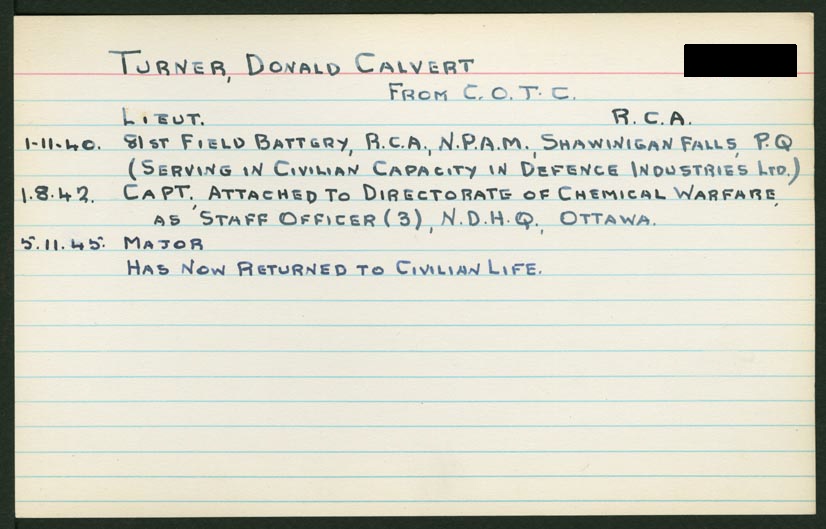 TURNER, DONALD CALVERT
FROM C.O.T.C.
LIEUT. R.C.A.
1-11-40. 81ST FIELD BATTERY, R.C.A., N.P.A.M., SHAWINIGAN FALLS, P.Q
(SERVING IN CIVILIAN CAPACITY IN DEFENCE INDUSTRIES LTD.)
1.8.42. CAPT. ATTACHED TO DIRECTORATE OF CHEMICAL WARFARE,
AS STAFF OFFICER (3), N.D.H.Q., OTTAWA.
5.11.45. MAJOR
HAS NOW RETURNED TO CIVILIAN LIFE.